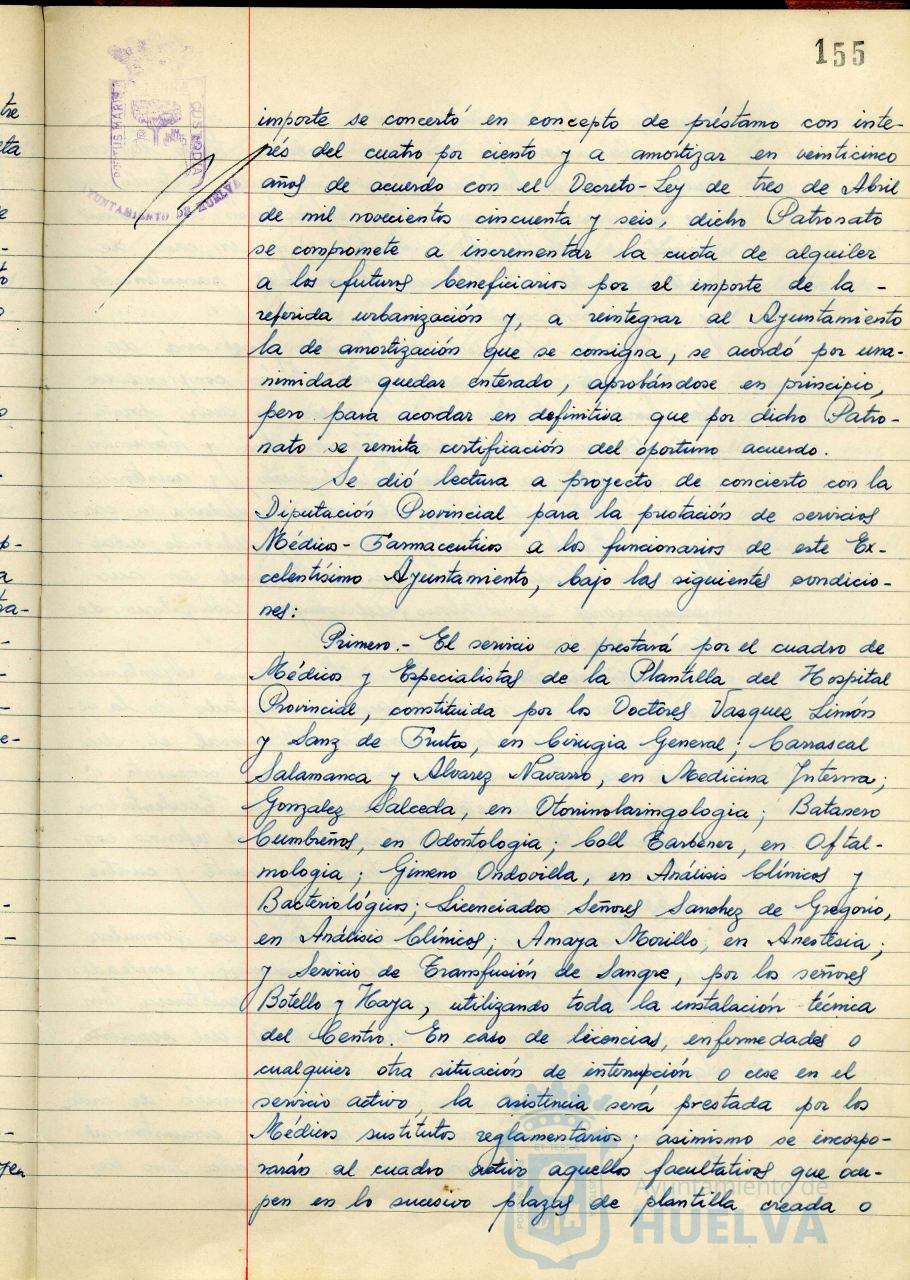 155
PORTUS MARIS
CUSTODIA
AYUNTAMIENTO DE HUELVA
importe se concertó en concepto de préstamo con inte-
rés del cuatro por ciento y a amortizar en veinticinco
años de acuerdo con el Decreto-Ley de tres de Abril
de mil novecientos cincuenta y seis, dicho Patronato
se compromete a incrementar la cuota de alquiler
a los futuros beneficiarios por el importe de la -
referida urbanización y, a reintegrar al Ayuntamiento
la de amortización que se consigna, se acordó por una-
nimidad quedar enterado, aprobándose en principio,
pero para acordar en definitiva que por dicho Patro-
nato se remita certificación del oportuno acuerdo.
Se dió lectura a proyecto de concierto con la
Diputación Provincial para la prestación de servicios
Médico-Farmaceuticos a los funcionarios de este Ex-
celentísimo Ayuntamiento, bajo las siguientes condicio-
nes:
Primero.- El servicio se prestará por el cuadro de
Médicos y Especialistas de la Plantilla del Hospital
Provincial, constituida por los Doctores Vazquez Limón
y Sanz de Frutos, en Cirugia General; Carrascal
Salamanca y Alvarez Navarro, en Medicina Interna;
Gonzalez Salceda, en Otorinolaringologia; Batanero
Cumbreños, en Odontologia; Coll Barbener, en Oftal-
mologia; Gimeno Ondovilla, en Análisis Clínicos y
Bacteriológicos; Licenciados Señores Sanchez de Gregorio,
en Análisis Clínicos; Amaya Morillo, en Anestesia;
y Servicio de Transfusión de Sangre, por los señores
Botello y Haya, utilizando toda la instalación técnica
del Centro. En caso de licencias, enfermedades o
cualquier otra situación de interrupción o cese en el
servicio activo, la asistencia será prestada por los
Médicos sustitutos reglamentarios; asimismo se incorpo-
rarán al cuadro activo aquellos facultativos que ocu-
pen en lo sucesivo plazas de plantilla creada o
Ayuntamiento de
HUELVA